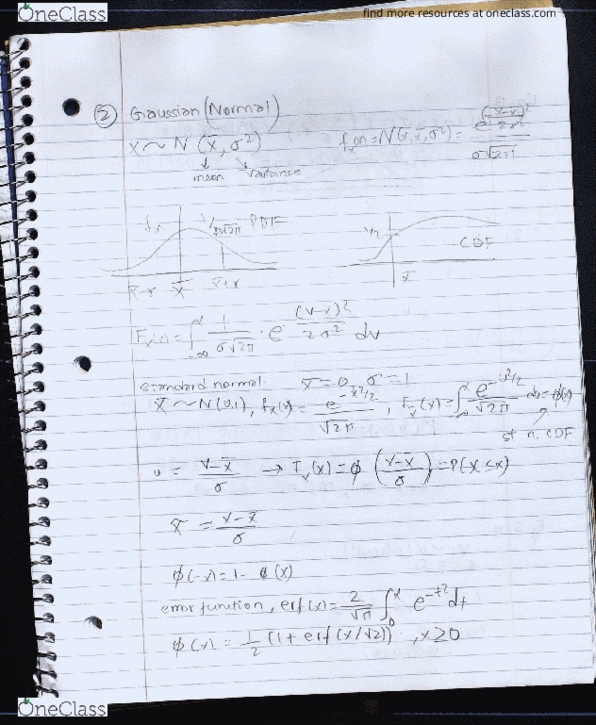 OneClass
find more resources at oneclass.com
② Gaussian (Normal)
X ~ N (x̄, σ²)
f_X(x) = N(x, x̄, σ²) = e^(-(x-x̄)²/2σ²) / σ√2π
mean variance
f_x 1/σ√2π PDF
1/2 CDF
x̄-σ x̄ x̄+σ
x̄
F_X(x) = ∫_-∞^x 1/σ√2π · e^((v-x̄)²/2σ²) dv
standard normal x̄ = 0, σ = 1
X ~ N(0,1), f_X(x) = e^(-x²/2) / √2π, F_X(x) = ∫_-∞^x e^(-u²/2) / √2π du = ϕ(x)
st n. CDF
u = (v-x̄)/σ → F_X(x) = ϕ((x-x̄)/σ) = P(X≤x)
x̄ = (x-x̄)/σ
ϕ(-x) = 1 - ϕ(x)
error function, erf(x) = 2/√π ∫_0^x e^(-t²) dt
ϕ(x) = 1/2 (1 + erf(x/√2)), x≥0
OneClass